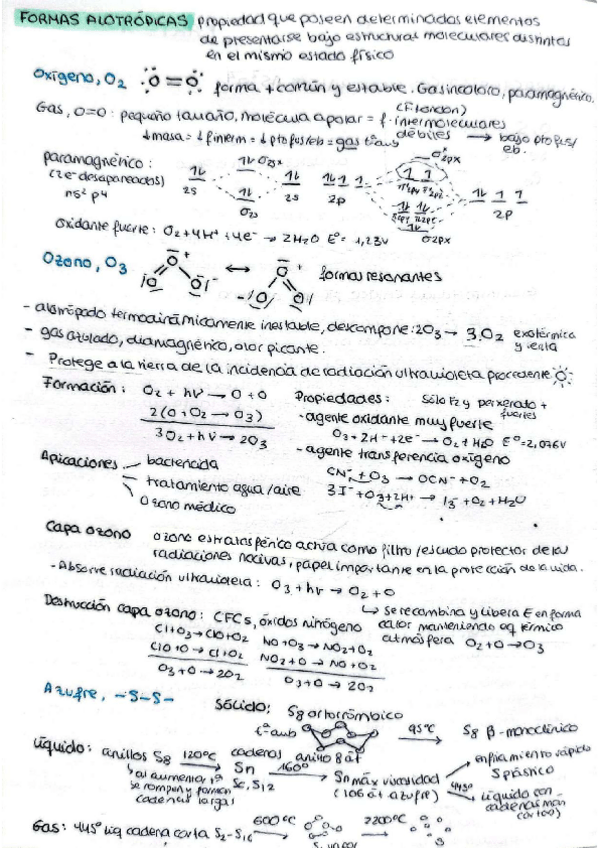 FORMAS ALOTRÓPICAS propiedad que poseen determinados elementos
de presentarse bajo estructuras moleculares distintas
en el mismo estado físico
Oxígeno, O2 O=O forma + común y estable. Gas incoloro, paramagnético.
Gas, O=O: pequeño tamaño, molécula apolar = f. intermoleculares
(F. London) débiles → bajo pto fus/eb.
↓masa = ↓f interm = ↓pto fus/eb = gas tª amb
paramagnético:
(2e- desapareados)
ns² p4
2s σ2s 2s 2p σ*2px 2p
σ2px
oxidante fuerte: O2+4H+ +4e- → 2H2O Eº= 1,23V
Ozono, O3 ↔ formas resonantes
- alotrópado termodinámicamente inestable, descompone: 2O3 → 3O2 exotérmica
y lenta
- gas azulado, diamagnético, olor picante.
- Protege a la tierra de la incidencia de radiación ultravioleta procedente
Formación: O2 + hν → O + O
2(O+O2 → O3)
3O2 + hν → 2O3
Propiedades: sólo F2 y perxenato +
fuertes
- agente oxidante muy fuerte
O3+2H-+2e- → O2+H2O Eº=2,076V
- agente transferencia oxígeno
CN- + O3 → OCN- + O2
3I- + O3+2H+ → I3- + O2 + H2O
Apicaciones
bactericida
tratamiento agua/aire
Ozono médico
Capa ozono ozono estratosférico actúa como filtro/escudo protector de las
radiaciones nocivas, papel importante en la protección de la vida.
- Absorve radiación ultravioleta: O3 + hν → O2 + O
↳ se recombina y libera E en forma
calor manteniendo eq térmico
atmósfera O2+O → O3
Destrucción capa ozono: CFCs, óxidos nitrógeno
Cl+O3 → ClO+O2 NO+O3 → NO2+O2
ClO+O → Cl+O2 NO2+O → NO+O2
O3+O → 2O2 O3+O → 2O2
Azufre, -S-S-
Sólido: S8 ortorrómbico
tª amb 95ºC S8 β-monoclínico
anillo 8 át
Líquido: anillos S8 120ºC cadenas Sn 160º Sn máx viscosidad
(106 át azufre)
al aumentar tª
se rompen y forman
cadenas largas
S6, S12
enfriamiento rápido
S plástico
445º líquido con
cadenas más
cortas
Gas: 445º líq cadena corta S2-S10 600ºC 2200ºC